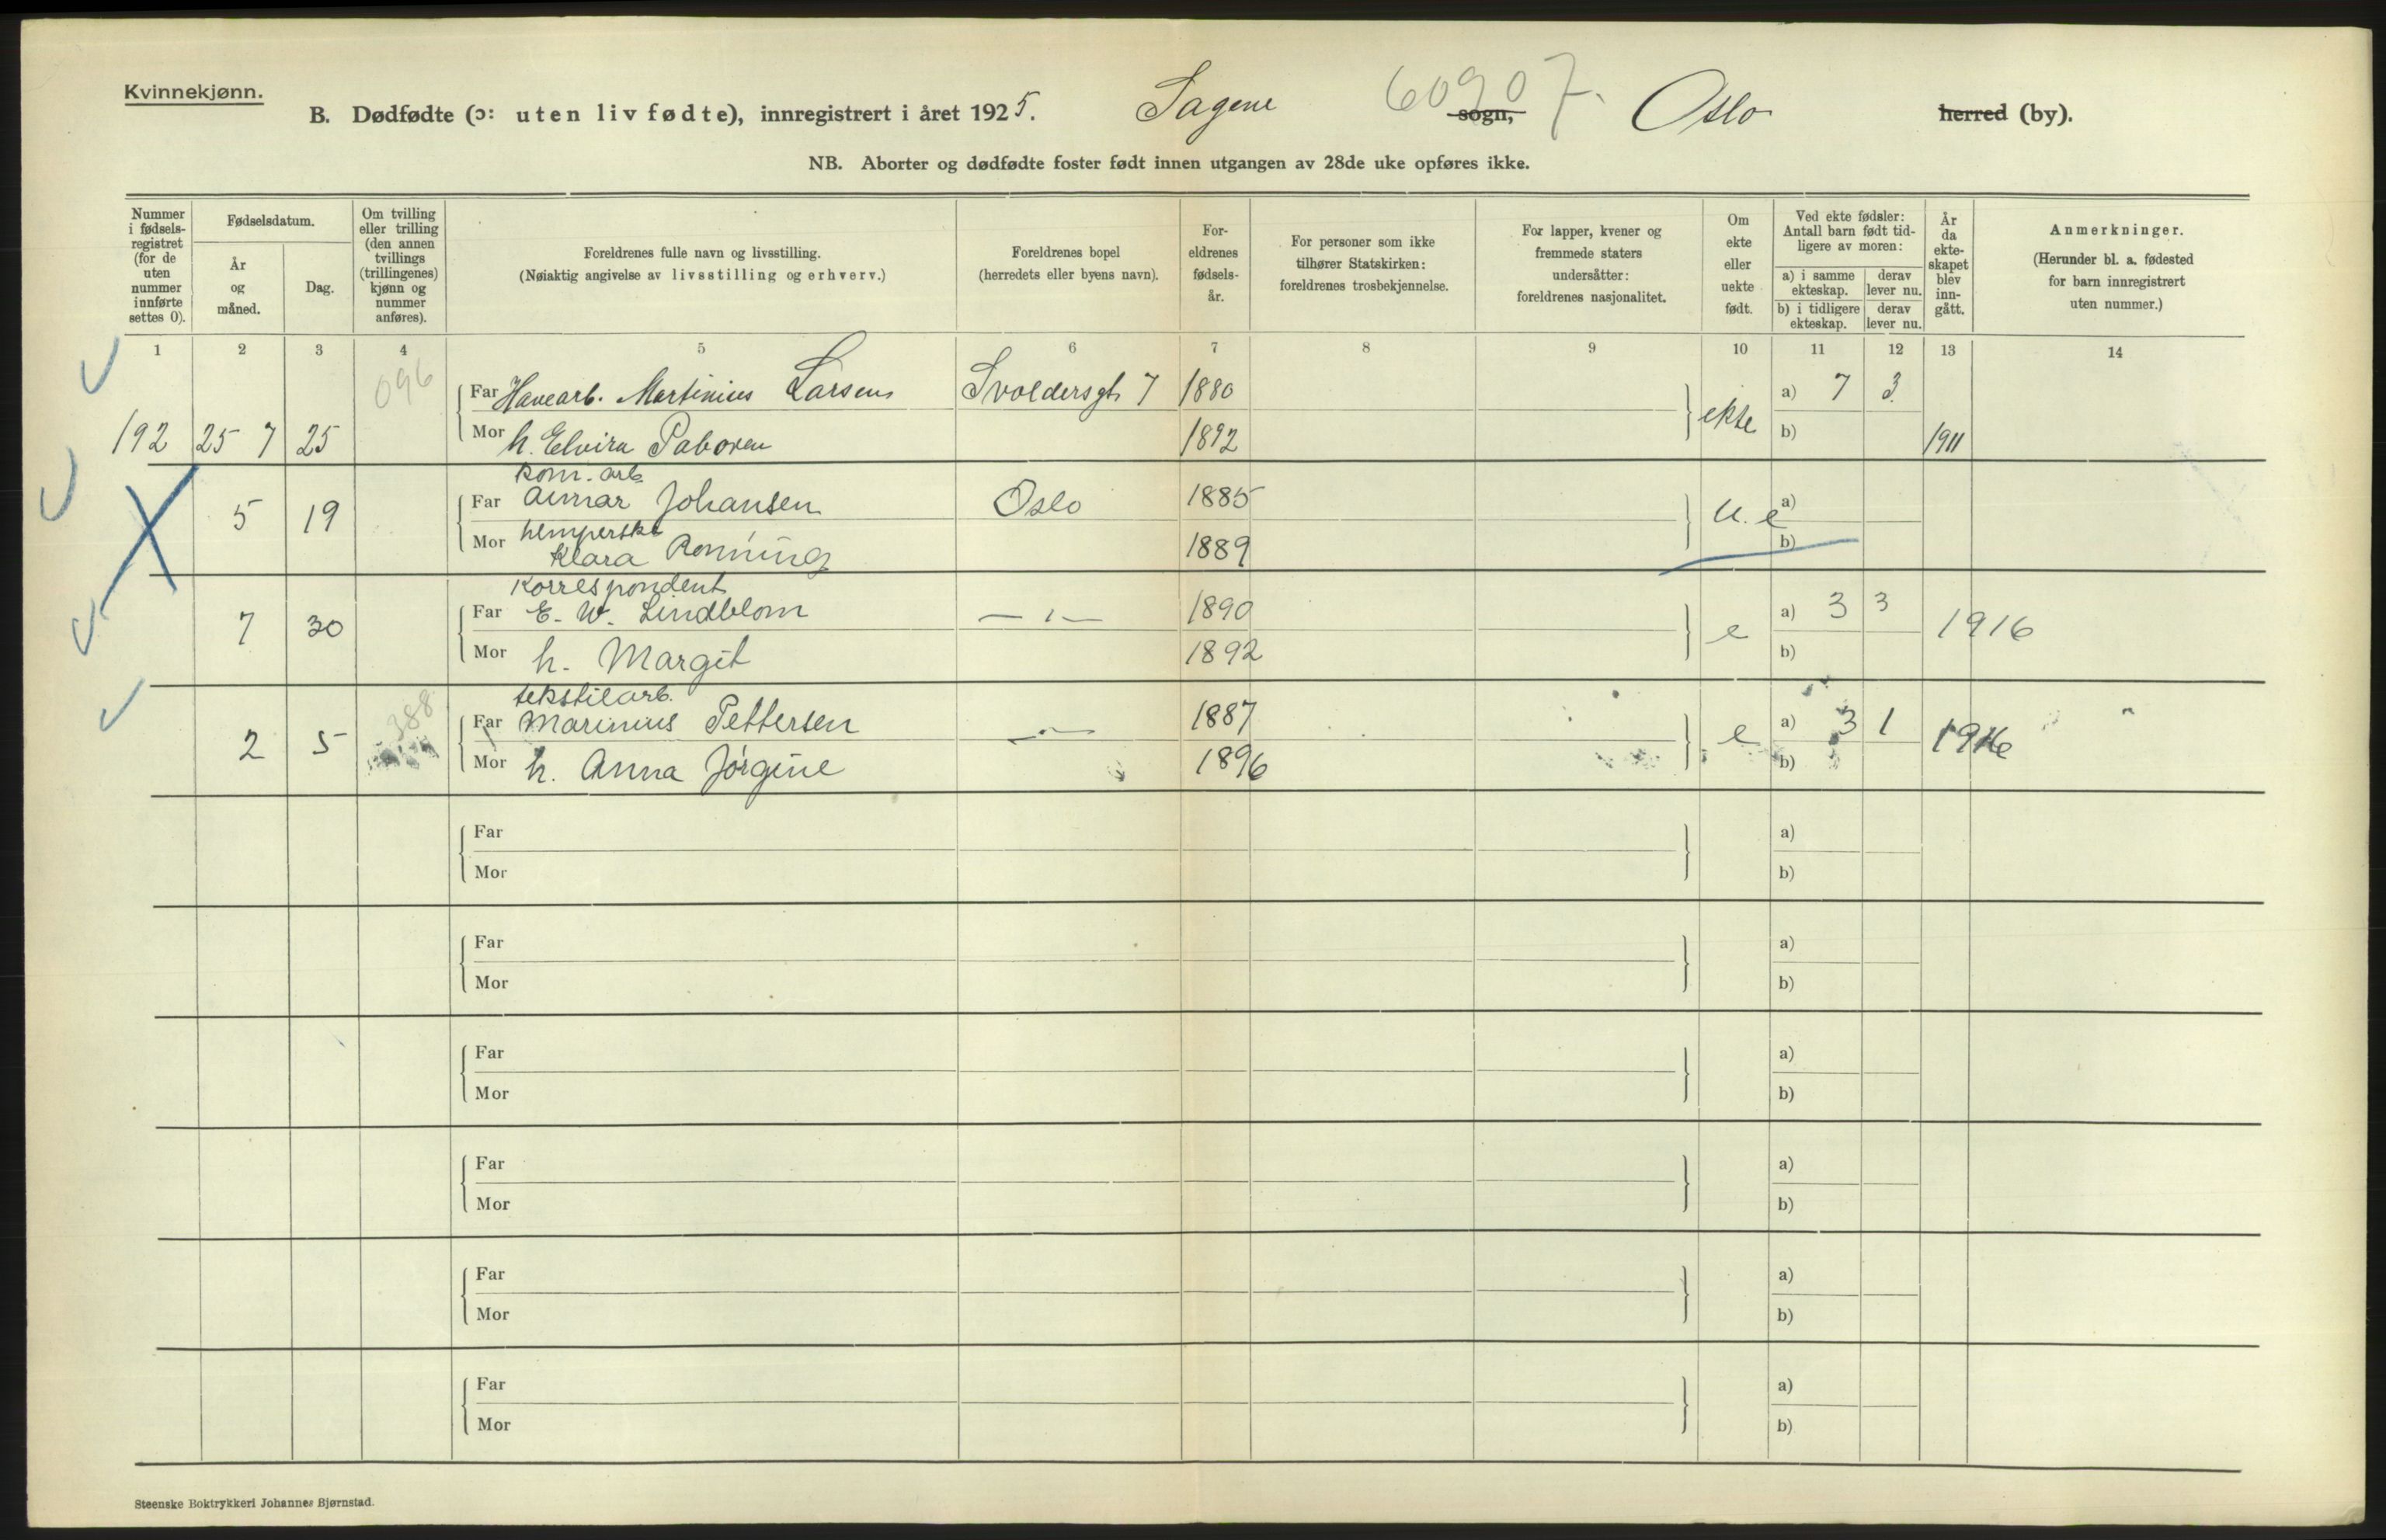 Kvinnekjønn.
B. Dødfødte (ɔ: uten liv fødte), innregistrert i året 1925. Sagene sogn, Oslo herred (by).
6090 7.
NB. Aborter og dødfødte foster født innen utgangen av 28de uke opføres ikke.
Nummer i fødsels-registret (for de uten nummer innførte settes 0).
Fødselsdatum.
År og måned.
Dag.
Om tvilling eller trilling (den annen tvillings (trillingenes) kjønn og nummer anføres).
Foreldrenes fulle navn og livsstilling.
(Nøiaktig angivelse av livsstilling og erhverv.)
Foreldrenes bopel
(herredets eller byens navn).
For-eldrenes fødsels-år.
For personer som ikke tilhører Statskirken: foreldrenes trosbekjennelse.
For lapper, kvener og fremmede staters undersåtter: foreldrenes nasjonalitet.
Om ekte eller uekte født.
Ved ekte fødsler: Antall barn født tid-ligere av moren:
a) i samme ekteskap. derav lever nu.
b) i tidligere ekteskap. derav lever nu.
År da ekte-skapet blev inn-gått.
Anmerkninger.
(Herunder bl. a. fødested for barn innregistrert uten nummer.)
1 2 3 4 5 6 7 8 9 10 11 12 13 14
096
Far Havearb. Martinius Larsen Svoldersgt. 7 1880 a) 7 3
192 25 7 25 Mor h. Elvira 1892 ekte b) 1911
kom. arb.
Far Johansen Oslo 1885 a)
5 19 u. e
Mor Klara Rønning 1889 b)
Korrespondent
Far E. W. Lindblom — ı — 1890 a) 3 3
7 30 e 1916
Mor h. Margit 1892 b)
tekstilarb.
388
Far Marinius Pettersen — ı — 1887 a) 3 1
2 5 e 1916
Mor h. Anna Jørgine 1896 b)
Far a)
Mor b)
Far a)
Mor b)
Far a)
Mor b)
Far a)
Mor b)
Far a)
Mor b)
Far a)
Mor b)
Steenske Boktrykkeri Johannes Bjørnstad.